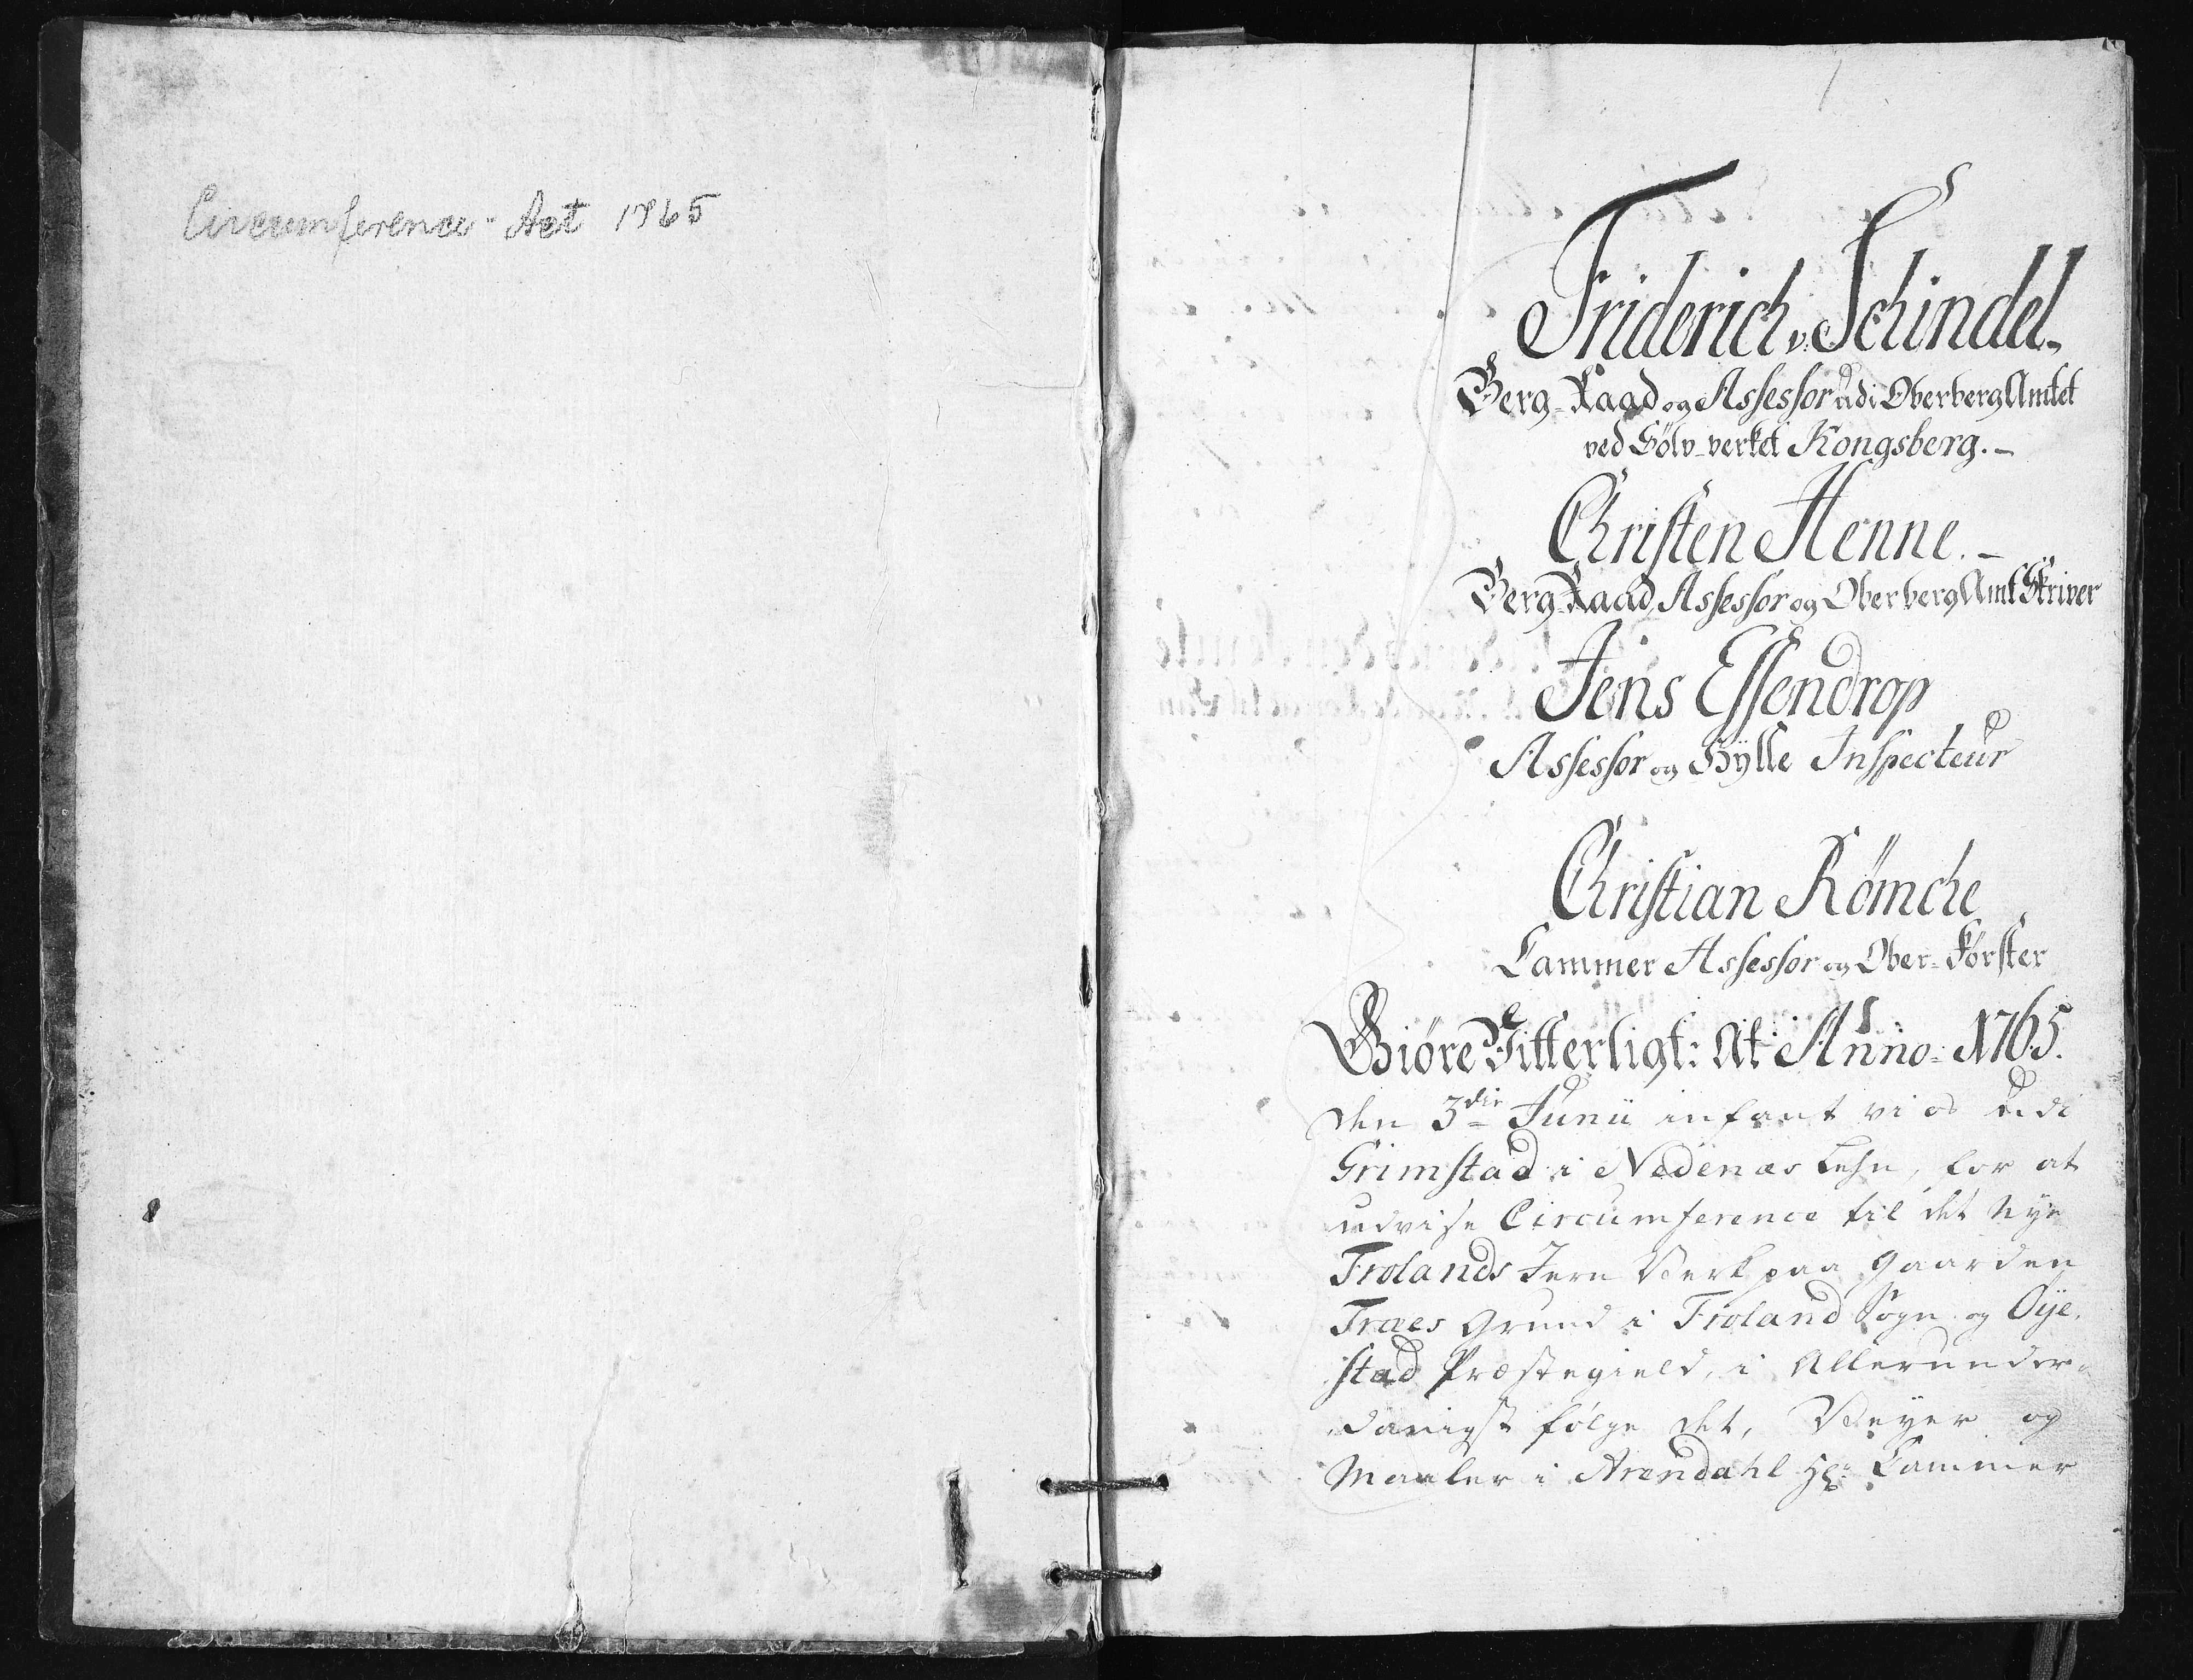 Circumference-Act 1765
1
Friderich v. Schindel
Berg-Raad og Assessor udi OberbergAmtet
ved Sølv-verket Kongsberg.-
Christen Henne.-
Berg-Raad, Assessor og OberbergAmtSkriver
Jens Essendrop
Assessor og Hytte Inspecteur
Christian Römche
Cammer Assessor og Ober-Förster
Giøre Vitterligt: At Anno: 1765.
den 3die Junii infant vi os udi
Grimstad i Nedenæs Lehn, for at
udvise Circumference til det Nye
Frolands Jern Verk paa gaarden
Traaes grund i Froland Sogn og Öye-
stad Præstegield, i Allerunder-
danigst følge det, Veyer og
Maaler i Arendahl Hr. Cammer